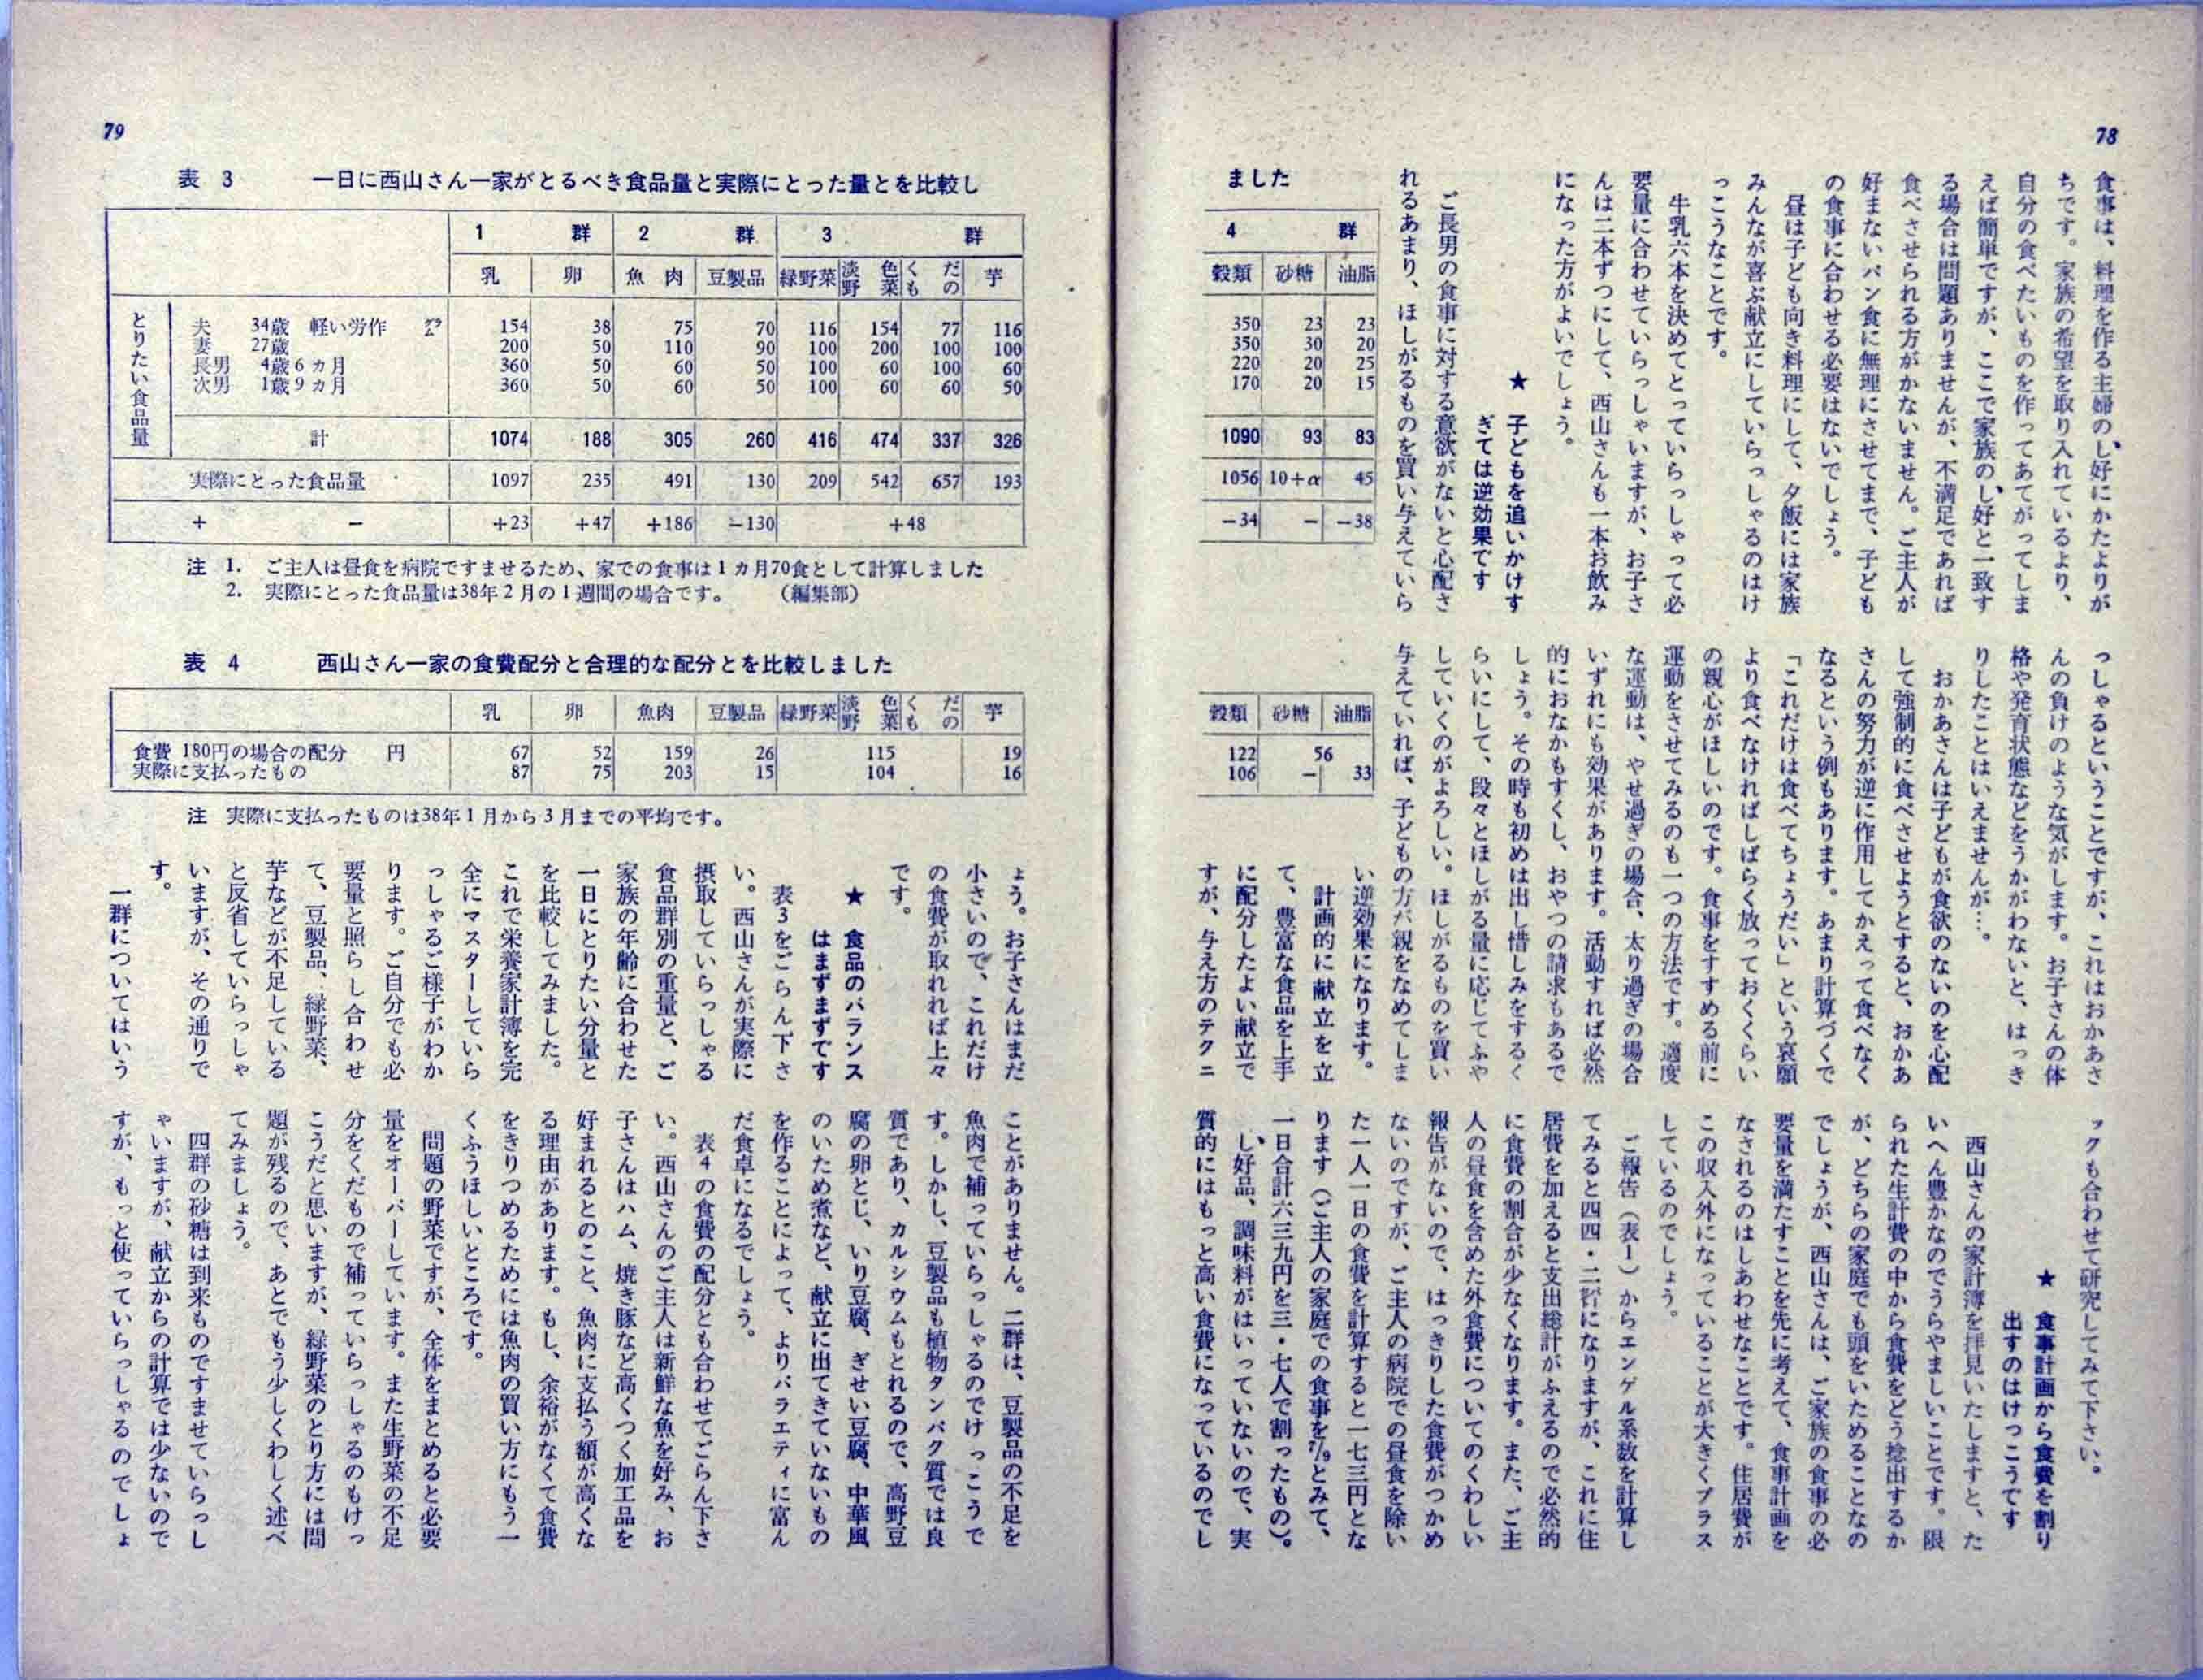 78
食事は、料理を作る主婦のし好にかたよりが
ちです。家族の希望を取り入れているより、
自分の食べたいものを作ってあてがってしま
えば簡単ですが、ここで家族のし好と一致す
る場合は問題ありませんが、不満足であれば
食べさせられる方がかないません。ご主人が
好まないパン食に無理にさせてまで、子ども
の食事に合わせる必要はないでしょう。
昼は子ども向き料理にして、夕飯には家族
みんなが喜ぶ献立にしていらっしゃるのはけ
っこうなことです。
牛乳六本を決めてとっていらっしゃって必
要量に合わせていらっしゃいますが、お子さ
んは二本ずつにして、西山さんも一本お飲み
になった方がよいでしょう。
★ 子どもを追いかけす
ぎては逆効果です
ご長男の食事に対する意欲がないと心配さ
れるあまり、ほしがるものを買い与えていら
っしゃるということですが、これはおかあさ
んの負けのような気がします。お子さんの体
格や発育状態などをうかがわないと、はっき
りしたことはいえませんが…。
おかあさんは子どもが食欲のないのを心配
して強制的に食べさせようとすると、おかあ
さんの努力が逆に作用してかえって食べなく
なるという例もあります。あまり計算づくで
「これだけは食べてちょうだい」という哀願
より食べなければしばらく放っておくくらい
の親心がほしいのです。食事をすすめる前に
運動をさせてみるのも一つの方法です。適度
な運動は、やせ過ぎの場合、太り過ぎの場合
いずれにも効果があります。活動すれば必然
的におなかもすくし、おやつの請求もあるで
しょう。その時も初めは出し惜しみをするく
らいにして、段々とほしがる量に応じてふや
していくのがよろしい。ほしがるものを買い
与えていれば、子どもの方が親をなめてしま
い逆効果になります。
計画的に献立を立
て、豊富な食品を上手
に配分したよい献立で
すが、与え方のテクニ
ックも合わせて研究してみて下さい。
★ 食事計画から食費を割り
出すのはけっこうです
西山さんの家計簿を拝見いたしますと、た
いへん豊かなのでうらやましいことです。限
られた生計費の中から食費をどう捻出するか
が、どちらの家庭でも頭をいためることなの
でしょうが、西山さんは、ご家族の食事の必
要量を満たすことを先に考えて、食事計画を
なされるのはしあわせなことです。住居費が
この収入外になっていることが大きくプラス
しているのでしょう。
ご報告（表1）からエンゲル系数を計算し
てみると四四・二㌫になりますが、これに住
居費を加えると支出総計がふえるので必然的
に食費の割合が少なくなります。また、ご主
人の昼食を含めた外食費についてのくわしい
報告がないので、はっきりした食費がつかめ
ないのですが、ご主人の病院での昼食を除い
た一人一日の食費を計算すると一七三円とな
ります（ご主人の家庭での食事を7/9とみて、
一日合計六三九円を三・七人で割ったもの）。
し好品、調味料がはいっていないので、実
質的にはもっと高い食費になっているのでし
79
表 3 一日に西山さん一家がとるべき食品量と実際にとった量とを比較し ました
1 群 2 群 3 群 4 群
乳 卵 魚肉 豆製品 緑野菜 淡色野菜 くだもの 芋 穀類 砂糖 油脂
とりたい食品量
夫 34歳 軽い労作 ㌘ 154 38 75 70 116 154 77 116 350 23 23
妻 27歳 200 50 110 90 100 200 100 100 350 30 20
長男 4歳6ヵ月 360 50 60 50 100 60 100 60 220 20 25
次男 1歳9ヵ月 360 50 60 50 100 60 60 50 170 20 15
計 1074 188 305 260 416 474 337 326 1090 93 83
実際にとった食品量 1097 235 491 130 209 542 657 193 1056 10+α 45
+ − +23 +47 +186 −130 +48 −34 − −38
注 1. ご主人は昼食を病院ですませるため、家での食事は1ヵ月70食として計算しました
2. 実際にとった食品量は38年2月の1週間の場合です。 （編集部）
表 4 西山さん一家の食費配分と合理的な配分とを比較しました
乳 卵 魚肉 豆製品 緑野菜 淡色野菜 くだもの 芋 穀類 砂糖 油脂
食費 180円の場合の配分 円 67 52 159 26 115 19 122 56
実際に支払ったもの 87 75 203 15 104 16 106 − 33
注 実際に支払ったものは38年1月から3月までの平均です。
ょう。お子さんはまだ
小さいので、これだけ
の食費が取れれば上々
です。
★ 食品のバランス
はまずまずです
表3をごらん下さ
い。西山さんが実際に
摂取していらっしゃる
食品群別の重量と、ご
家族の年齢に合わせた
一日にとりたい分量と
を比較してみました。
これで栄養家計簿を完
全にマスターしていら
っしゃるご様子がわか
ります。ご自分でも必
要量と照らし合わせ
て、豆製品、緑野菜、
芋などが不足している
と反省していらっしゃ
いますが、その通りで
す。
一群についてはいう
ことがありません。二群は、豆製品の不足を
魚肉で補っていらっしゃるのでけっこうで
す。しかし、豆製品も植物タンパク質では良
質であり、カルシウムもとれるので、高野豆
腐の卵とじ、いり豆腐、ぎせい豆腐、中華風
のいため煮など、献立に出てきていないもの
を作ることによって、よりバラエティに富ん
だ食卓になるでしょう。
表4の食費の配分とも合わせてごらん下さ
い。西山さんのご主人は新鮮な魚を好み、お
子さんはハム、焼き豚など高くつく加工品を
好まれるとのこと、魚肉に支払う額が高くな
る理由があります。もし、余裕がなくて食費
をきりつめるためには魚肉の買い方にもう一
くふうほしいところです。
問題の野菜ですが、全体をまとめると必要
量をオーバーしています。また生野菜の不足
分をくだもので補っていらっしゃるのもけっ
こうだと思いますが、緑野菜のとり方には問
題が残るので、あとでもう少しくわしく述べ
てみましょう。
四群の砂糖は到来ものですませていらっし
ゃいますが、献立からの計算では少ないので
すが、もっと使っていらっしゃるのでしょ